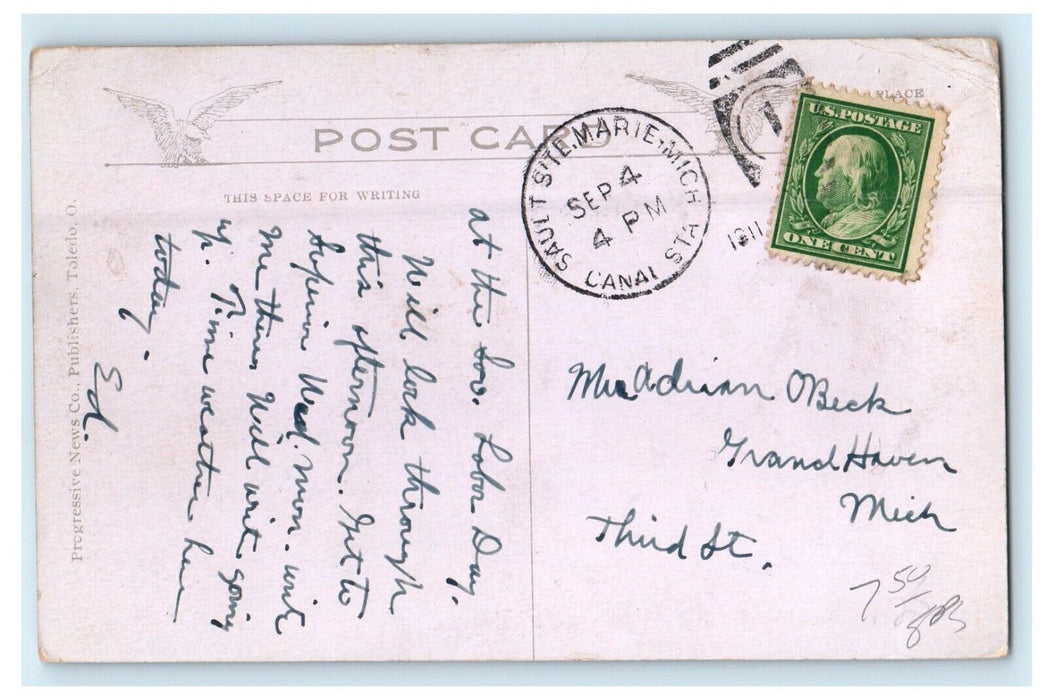 PLACE
POST CARD
THIS SPACE FOR WRITING
SAULT STE. MARIE, MICH
SEP 4
4 PM
CANAL STA
1911
U.S. POSTAGE
ONE CENT
at the Soo. Labor Day.
Will lock through
this afternoon. Get to
Superior Wed. morn. write
me there Will write going
up. Fine weather here
today.
Ed.
Adrian OBeck
Grand Haven
Mich
Third St.
Progressive News Co., Publishers, Toledo, O.
7 50